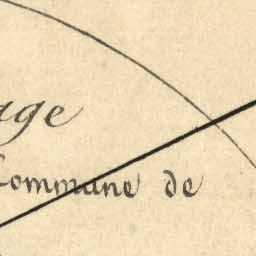 age
Commune de